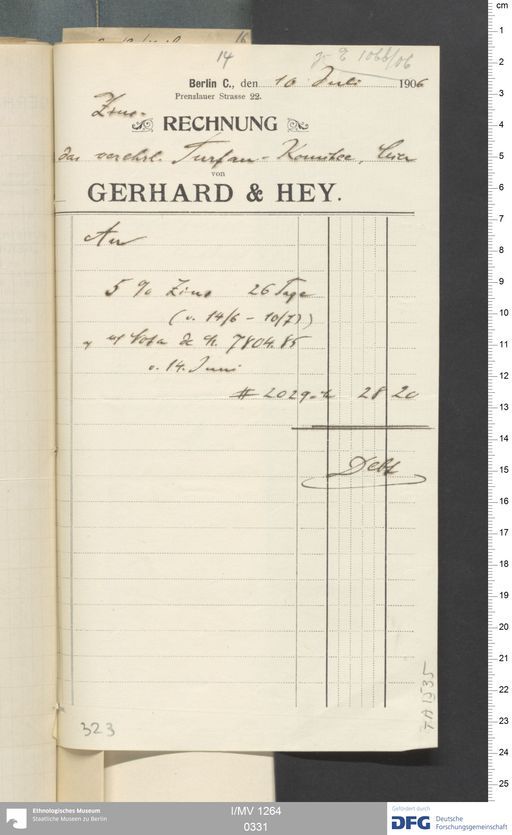 14
zu E 1066/06
Berlin C., den 10 Juli 1906
Prenzlauer Strasse 22.
Zins-
RECHNUNG
das verehrl. Turfan-Komitee, hier
von
GERHARD & HEY.
An
5 % Zins 26 Tage
(v. 14/6 - 10/7)
Nota de M. 7804.85
v. 14. Juni
# 2029 28 20
Debt
323
TA 1535
I/MV 1264
0331
Ethnologisches Museum
Staatliche Museen zu Berlin
Gefördert durch
DFG Deutsche
Forschungsgemeinschaft
cm
1
2
3
4
5
6
7
8
9
10
11
12
13
14
15
16
17
18
19
20
21
22
23
24
25